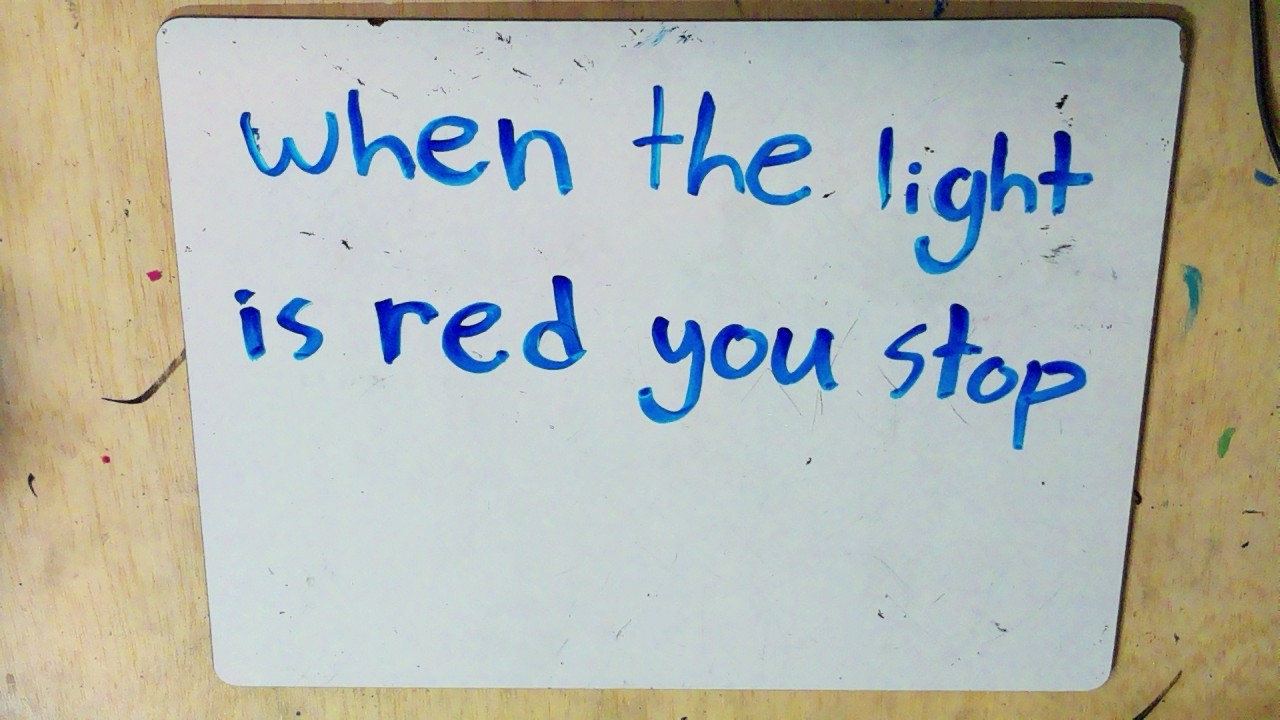 when the light
is red you stop